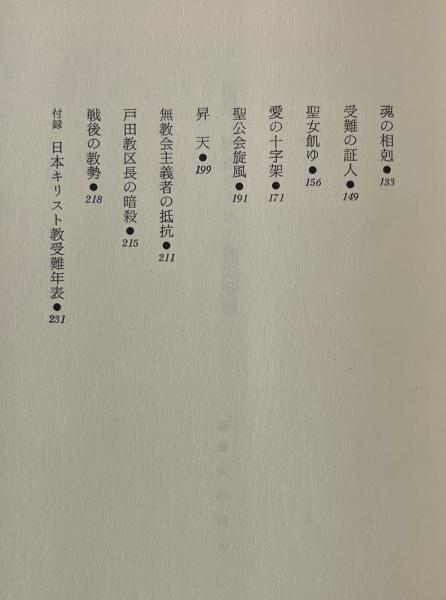 魂の相剋●133
受難の証人●149
聖女飢ゆ●156
愛の十字架●171
聖公会旋風●191
昇 天●199
無教会主義者の抵抗●211
戸田教区長の暗殺●215
戦後の教勢●218
付録 日本キリスト教受難年表●231